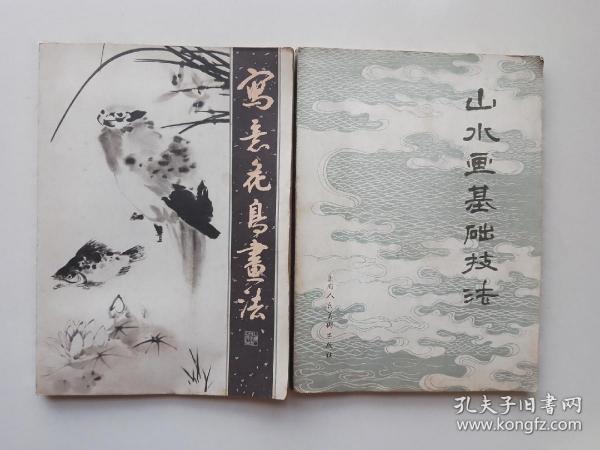 寫意花鳥畫法
山水画基础技法
人民美術出版社
孔夫子旧书网
www.kongfz.com